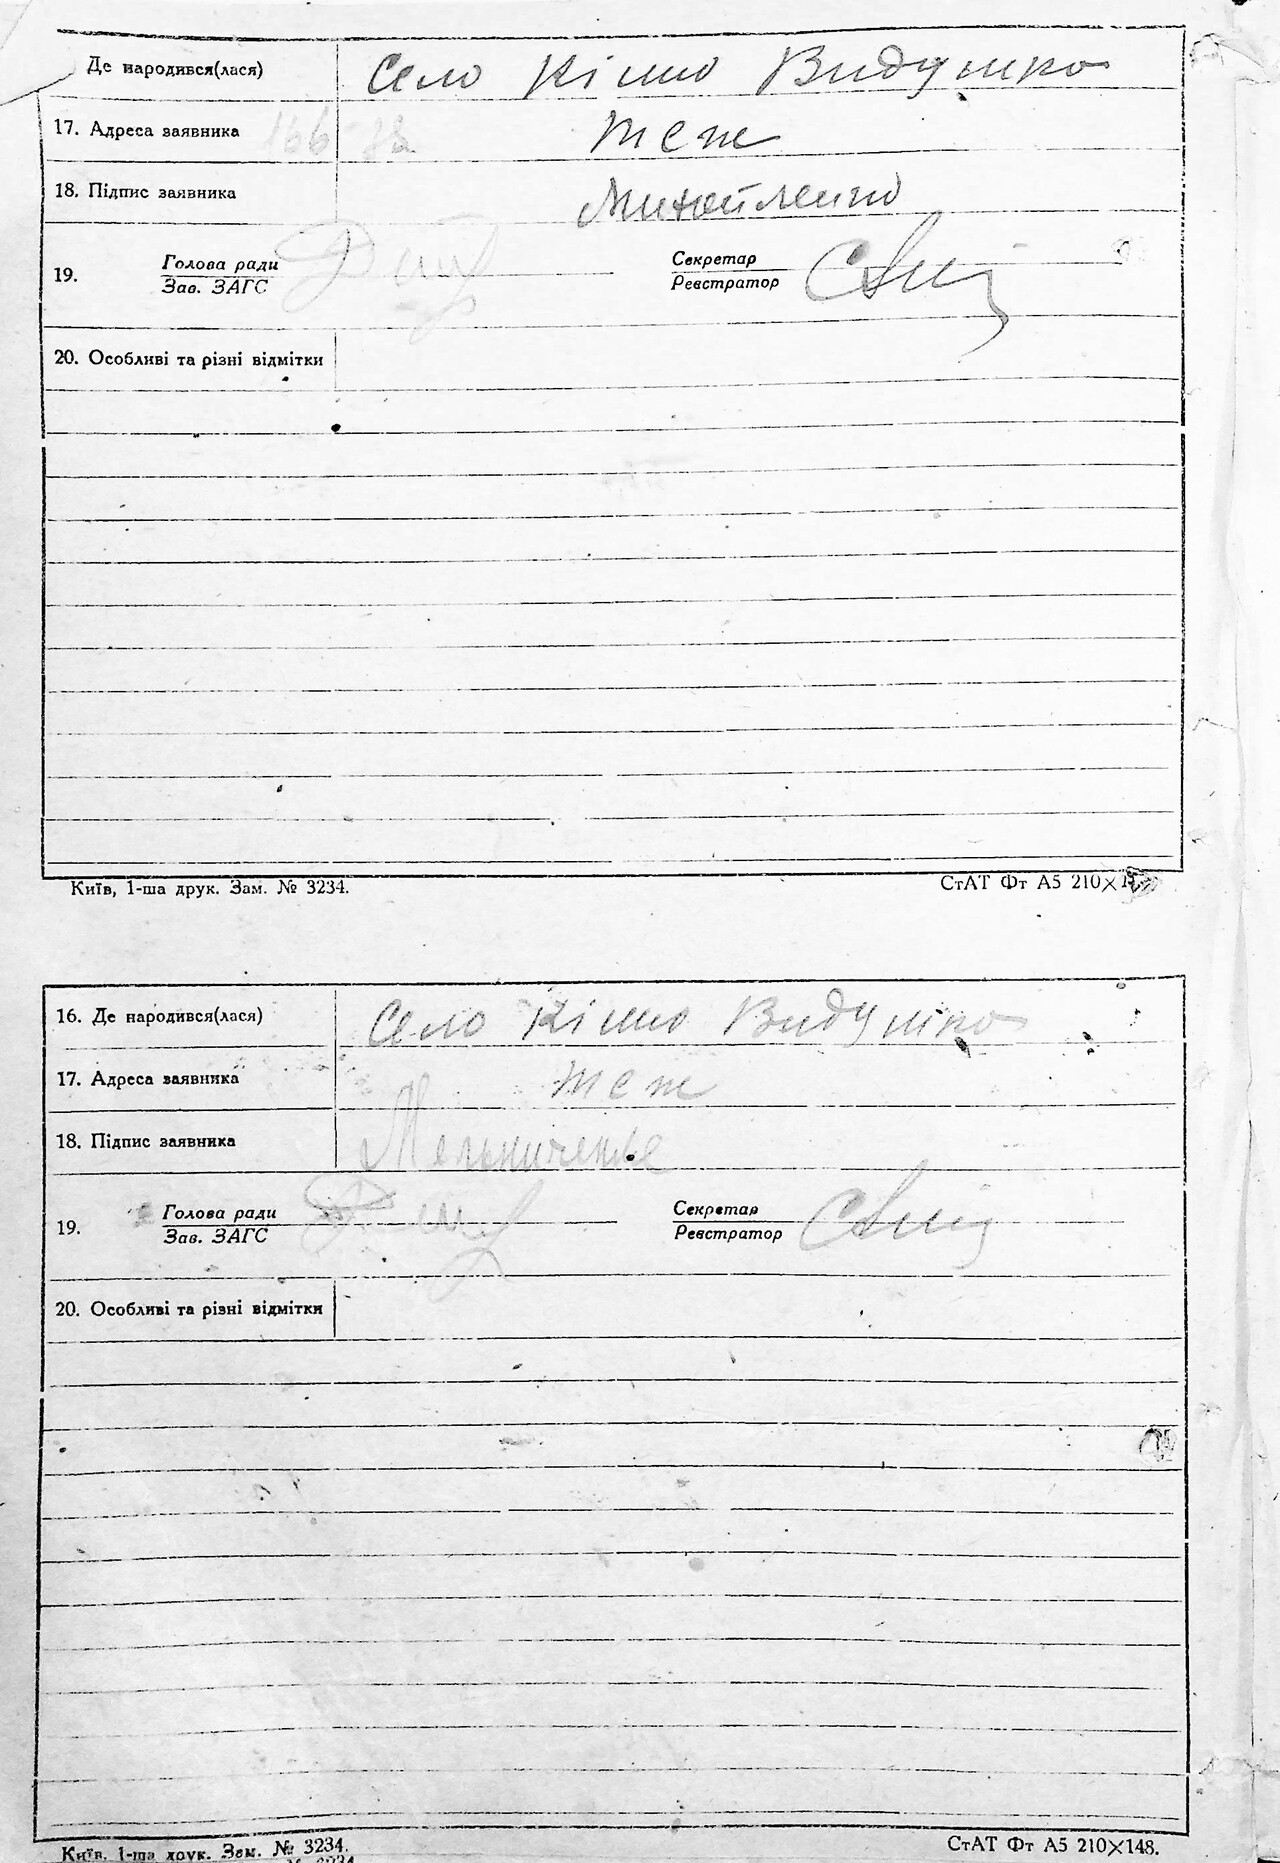 Де народився(лася) Село Кімно Видушка
17. Адреса заявника 166 теж
18. Підпис заявника Михайленко
19. Голова ради Секретар
Зав. ЗАГС Реєстратор
20. Особливі та різні відмітки
Київ, 1-ша друк. Зам. № 3234. СтАТ Фт А5 210×1
16. Де народився(лася) Село Кімно Видушка
17. Адреса заявника теж
18. Підпис заявника Мельниченко
19. Голова ради Секретар
Зав. ЗАГС Реєстратор
20. Особливі та різні відмітки
Київ, 1-ша друк. Зам. № 3234. СтАТ Фт А5 210×148.